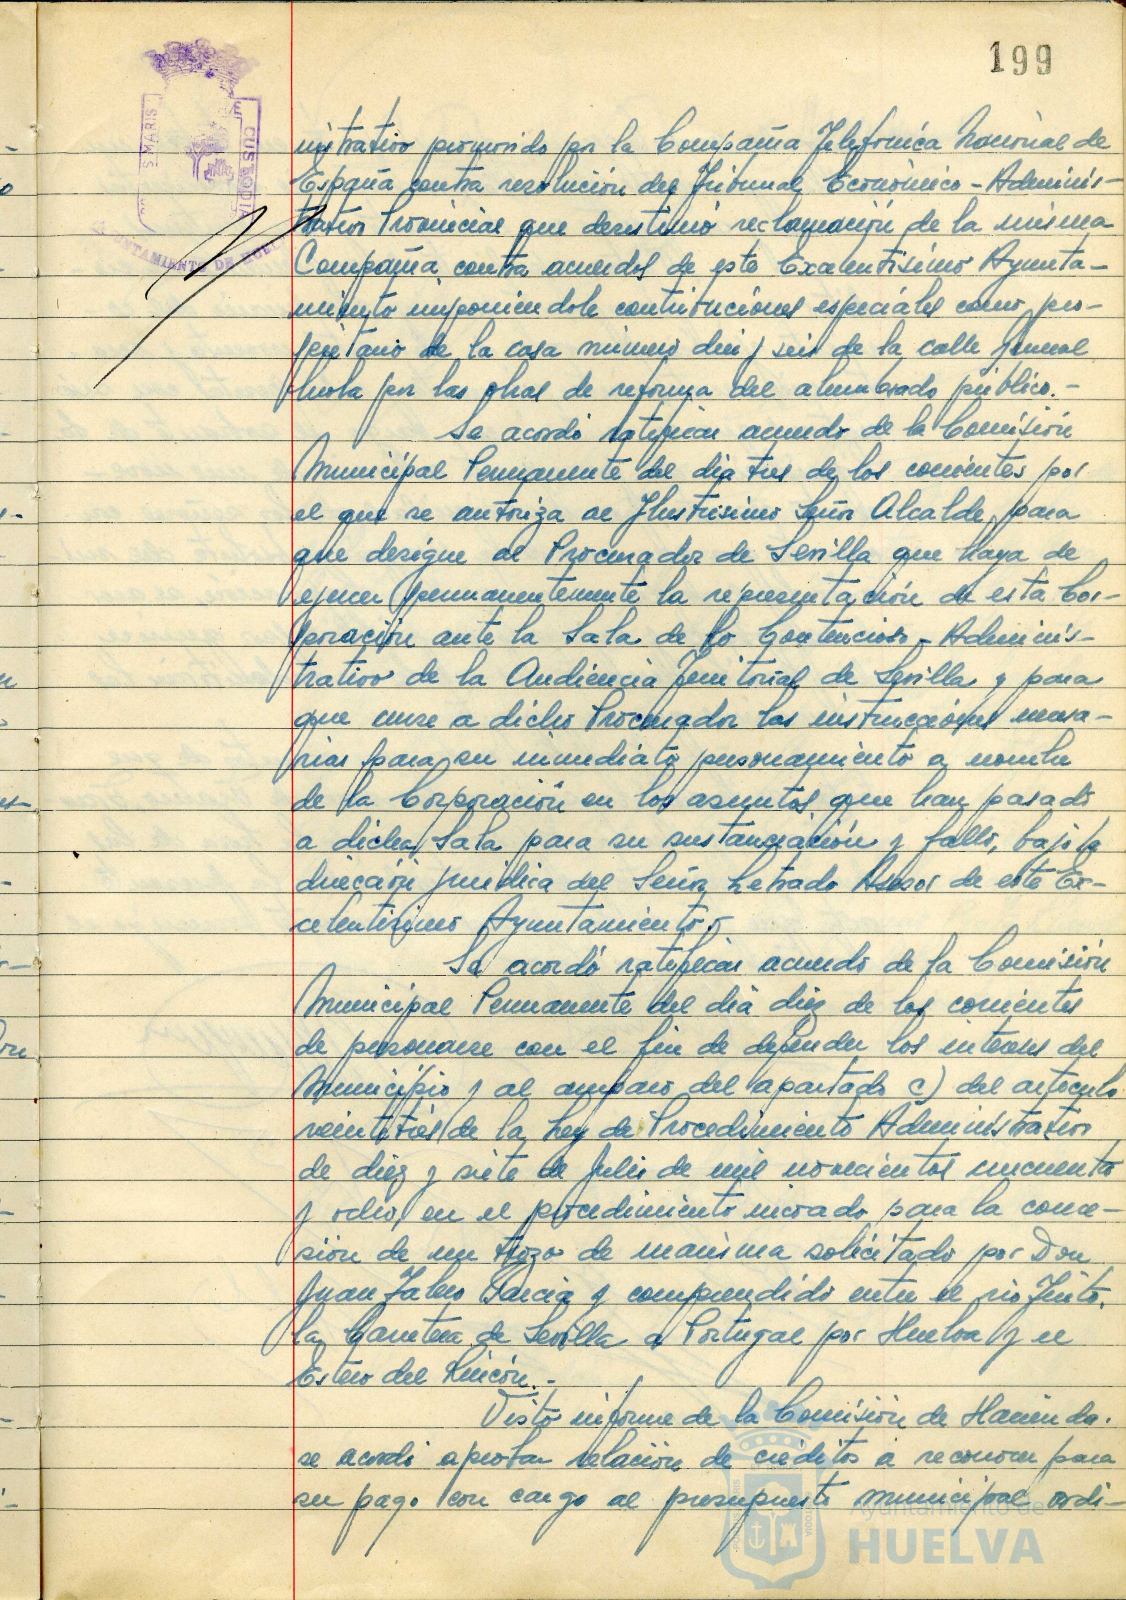 199
S MARIS
CUSTODIA
AYUNTAMIENTO DE HUELVA
nistrativo promovido por la Compañia Telefónica Nacional de
España contra resolución del Tribunal Económico-Adminis-
trativo Provincial que desestimó reclamación de la misma
Compañia contra acuerdos de este Excelentísimo Ayunta-
miento imponiendole contribuciones especiales como pro-
pietario de la casa número diez y seis de la calle General
Mola por las obras de reforma del alumbrado público.-
Se acordó ratificar acuerdo de la Comisión
Municipal Permanente del dia tres de los corrientes por
el que se autoriza al Ilustrisimo Señor Alcalde, para
que designe al Procurador de Sevilla que haya de
ejercer permanentemente la representación de esta Cor-
poración ante la Sala de lo Contencioso-Adminis-
trativo de la Audiencia Territorial de Sevilla y para
que curse a dicho Procurador las instrucciones necesa-
rias para su inmediato personamiento a nombre
de la Corporación en los asuntos que han pasado
a dicha Sala para su sustanciación y fallo, bajo la
dirección juridica del Señor Letrado Asesor de este Ex-
celentisimo Ayuntamiento.-
Se acordó ratificar acuerdo de la Comisión
Municipal Permanente del dia diez de los corrientes
de personarse con el fin de defender los intereses del
Municipio y al amparo del apartado c) del articulo
veintitrés de la Ley de Procedimiento Administrativo
de diez y siete de Julio de mil novecientos cincuenta
y ocho, en el procedimiento incoado para la conce-
sión de un trozo de marisma solicitado por Don
Juan Garcia y comprendido entre el rio Tinto,
la Carretera de Sevilla a Portugal por Huelva y el
Estero del Rincón.-
Visto informe de la Comisión de Hacienda.
se acordó aprobar relación de créditos a reconocer para
su pago con cargo al presupuesto municipal ordi-
Ayuntamiento de
HUELVA